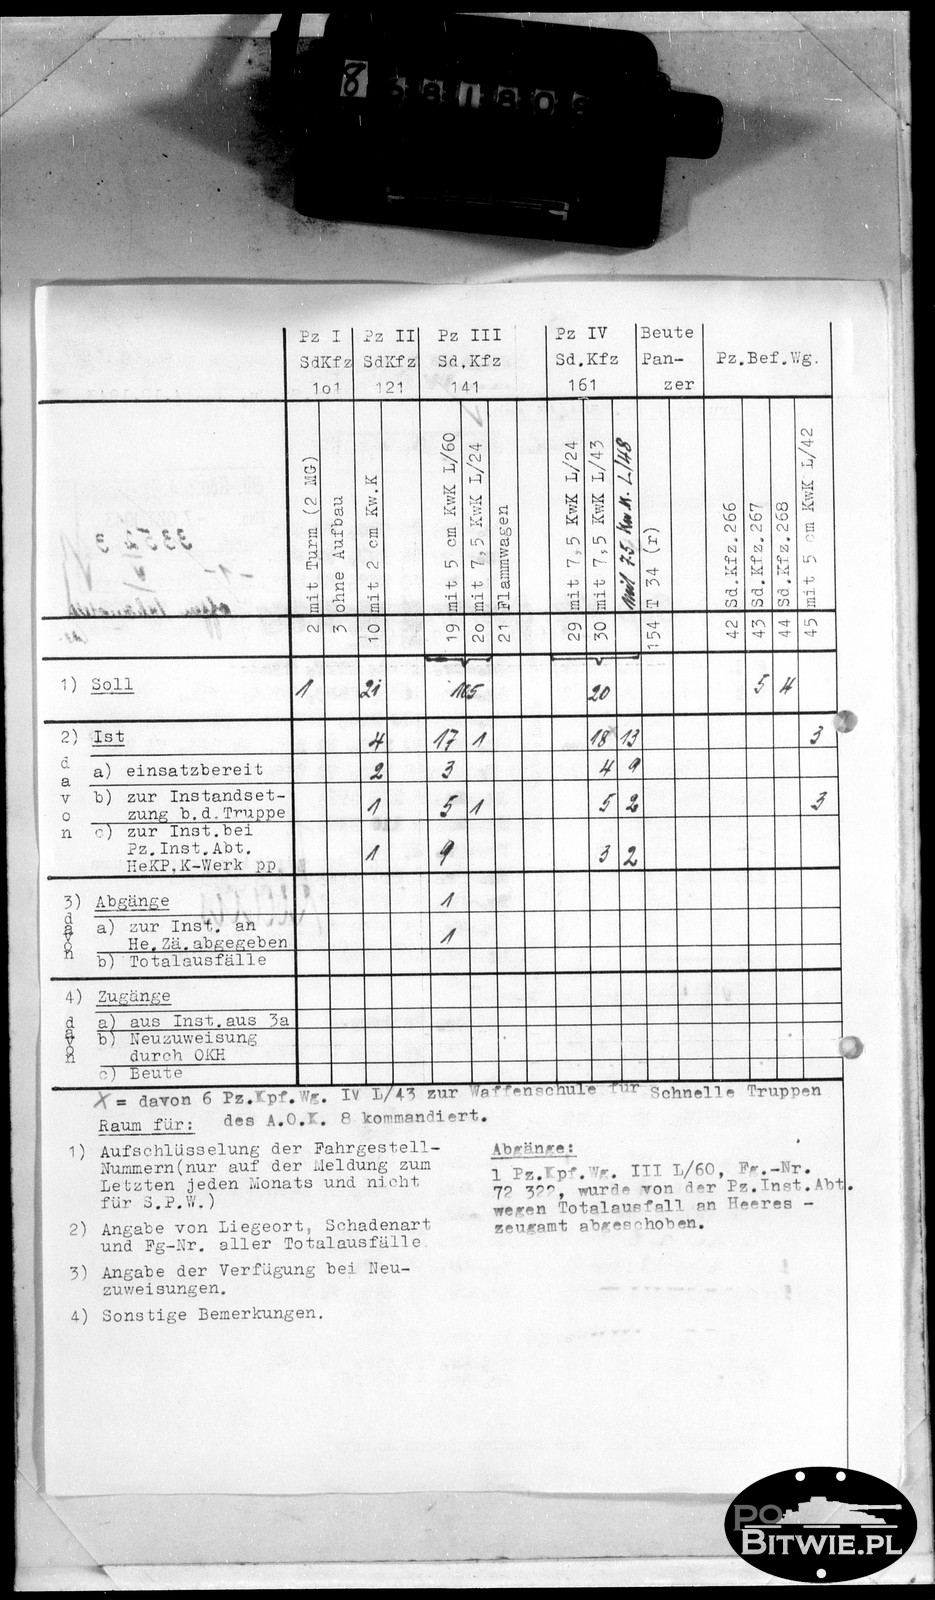 8 381808
Pz I Pz II Pz III Pz IV Beute
SdKfz SdKfz Sd.Kfz Sd.Kfz Pan- Pz.Bef.Wg.
1o1 121 141 161 zer
2 mit Turm (2 MG)
3 ohne Aufbau
10 mit 2 cm Kw.K
19 mit 5 cm KwK L/60
2o mit 7,5 KwK L/24
21 Flammwagen
29 mit 7,5 KwK L/24
30 mit 7,5 KwK L/43
mit 7.5 Kw K. L/48
154 T 34 (r)
42 Sd.Kfz.266
43 Sd.Kfz.267
44 Sd.Kfz.268
45 mit 5 cm KwK L/42
1) Soll 1 21 165 20 5 4
2) Ist 4 17 1 18 x 13 3
davon
a) einsatzbereit 2 3 4 9
b) zur Instandset-
zung b.d.Truppe 1 5 1 5 2 3
c) zur Inst.bei
Pz.Inst.Abt.
HeKP,K-Werk pp. 1 9 3 2
3) Abgänge 1
davon
a) zur Inst. an
He.Zä.abgegeben 1
b) Totalausfälle
4) Zugänge
davon
a) aus Inst.aus 3a
b) Neuzuweisung
durch OKH
c) Beute
X = davon 6 Pz.Kpf.Wg. IV L/43 zur Waffenschule für Schnelle Truppen
Raum für: des A.O.K. 8 kommandiert.
1) Aufschlüsselung der Fahrgestell-
Nummern(nur auf der Meldung zum
Letzten jeden Monats und nicht
für S.P.W.)
2) Angabe von Liegeort, Schadenart
und Fg-Nr. aller Totalausfälle.
3) Angabe der Verfügung bei Neu-
zuweisungen.
4) Sonstige Bemerkungen.
Abgänge:
1 Pz.Kpf.Wg. III L/60, Fg.-Nr.
72 322, wurde von der Pz.Inst.Abt.
wegen Totalausfall an Heeres -
zeugamt abgeschoben.
PO
BITWIE.PL